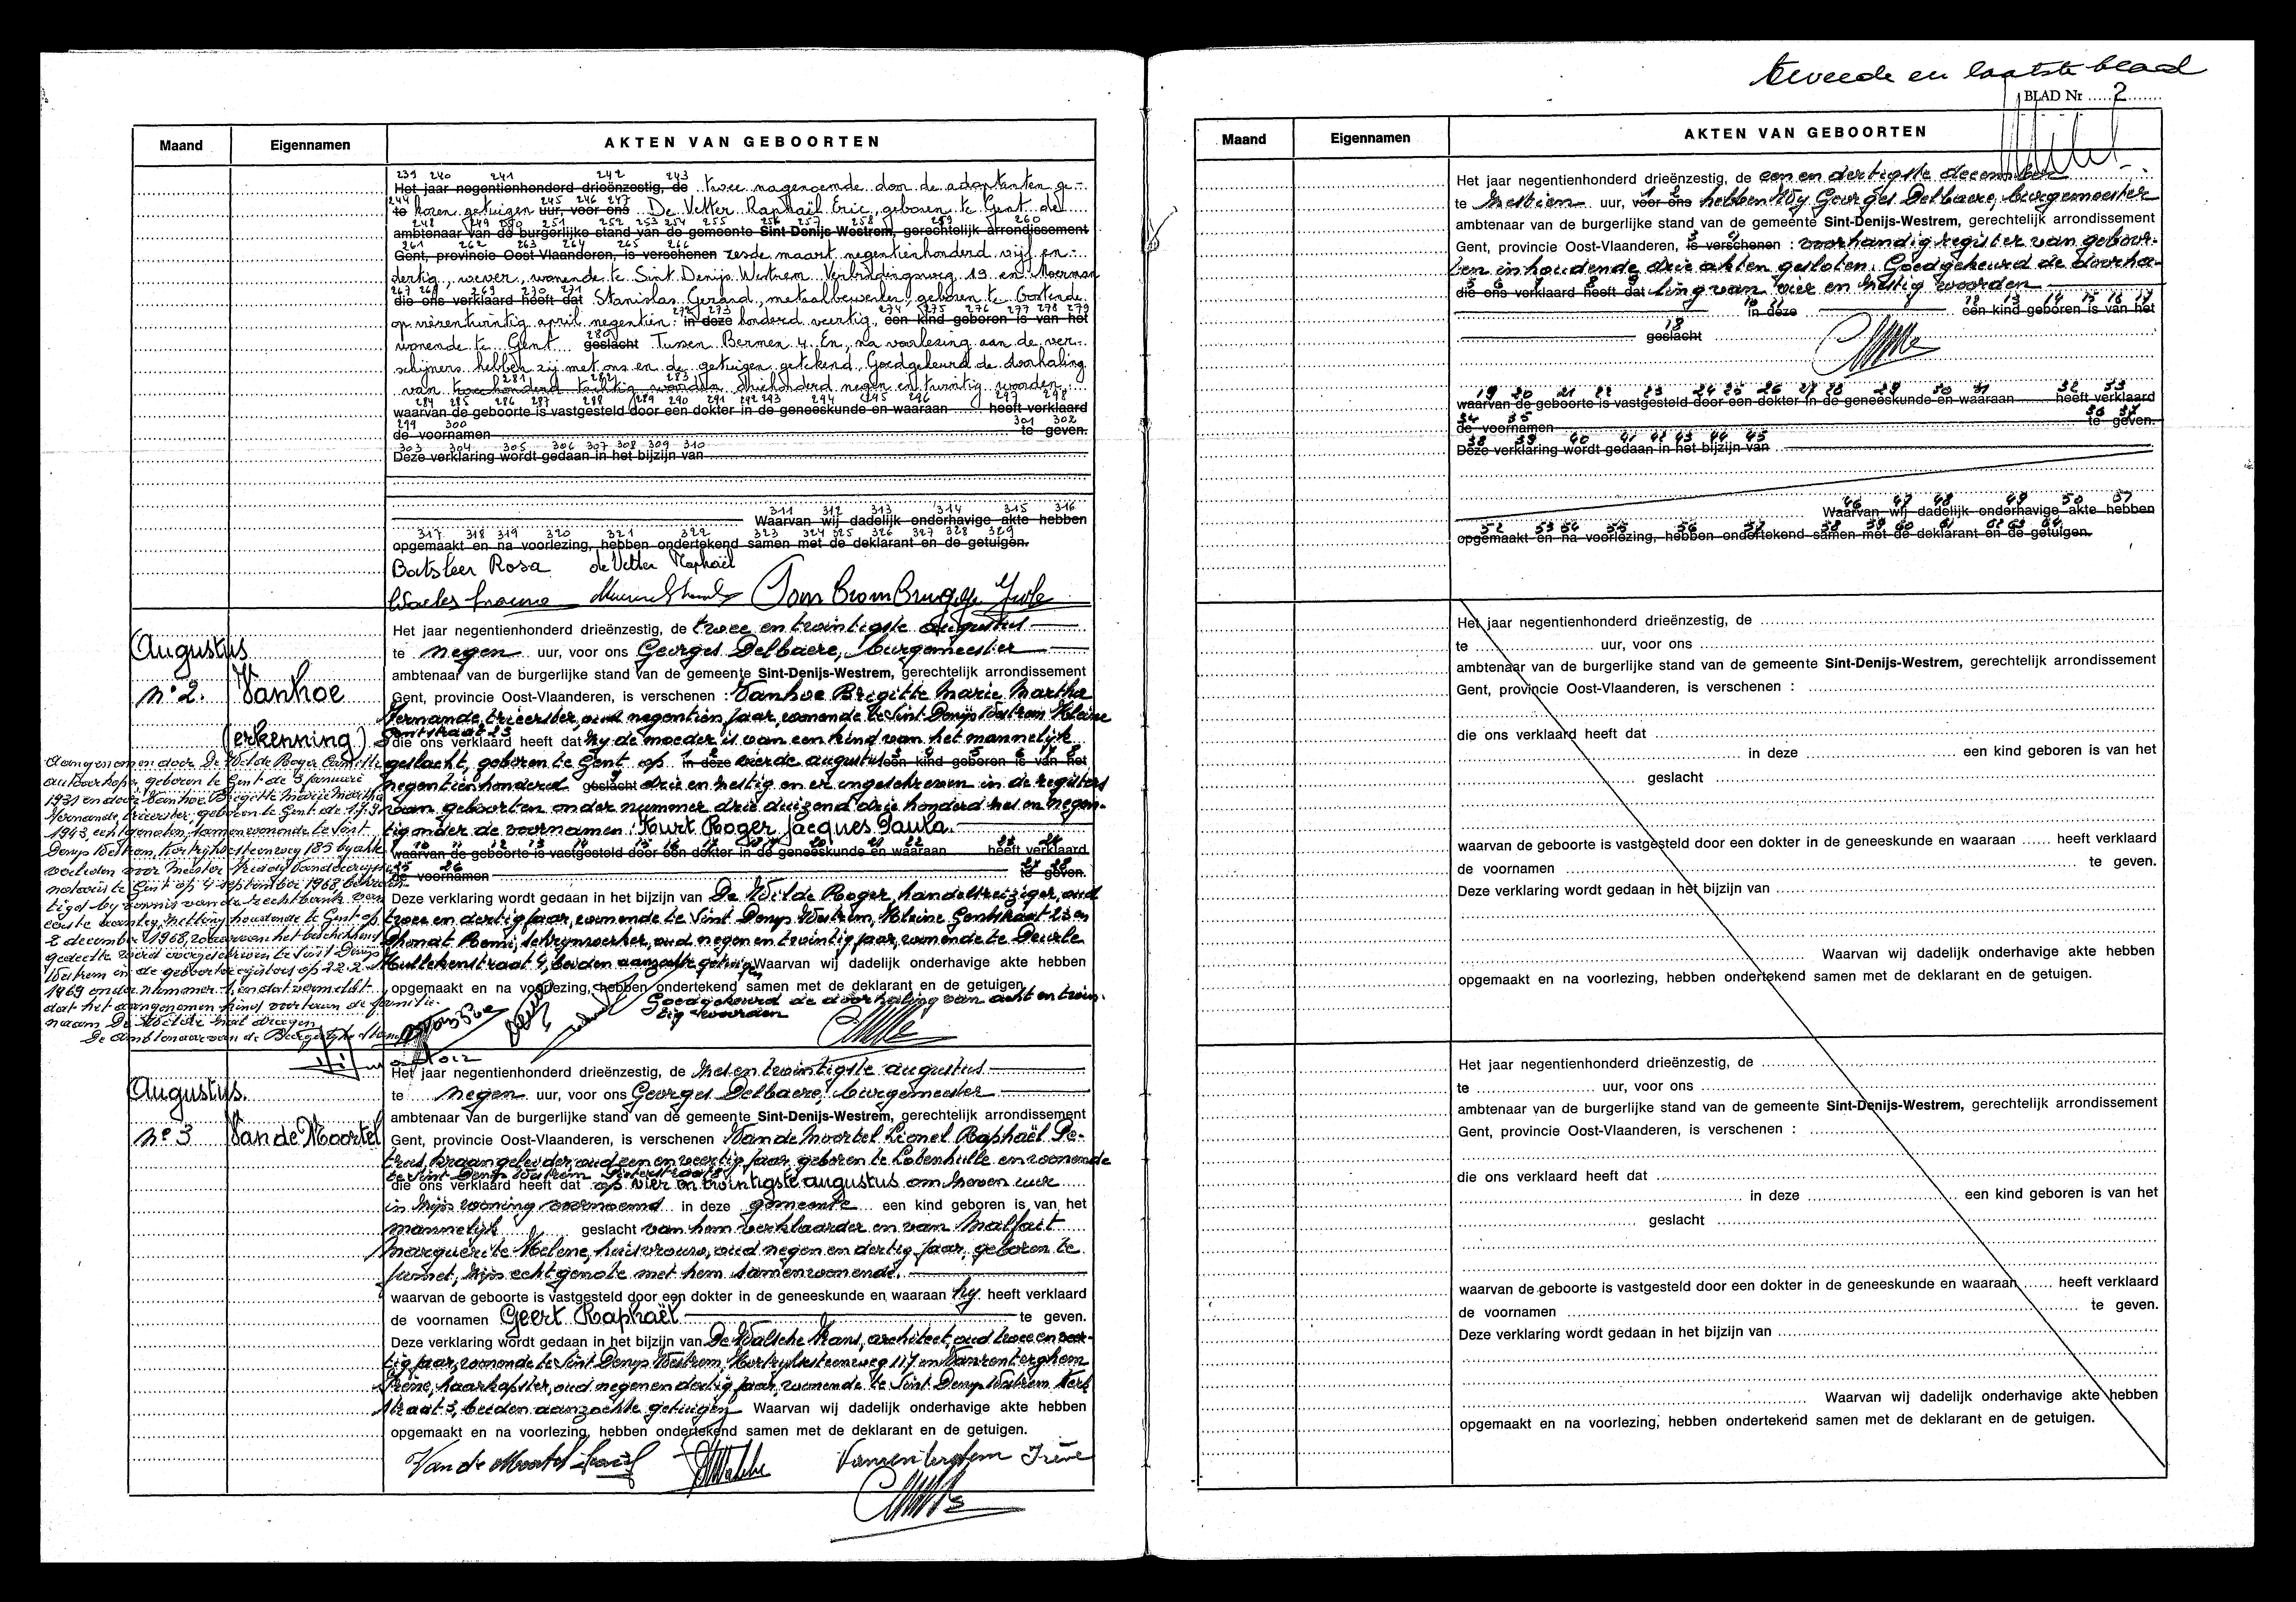 Maand
Eigennamen
AKTEN VAN GEBOORTEN
239 240 241 242 243
Het jaar negentienhonderd drieënzestig, de twee nagenoemde door de adoptanten ge-
244 245 246 247
te kozen getuigen uur, voor ons De Vetter Raphaël Eric, geboren te Gent de
248 249 250 251 252 253 254 255 256 257 258 259 260
ambtenaar van de burgerlijke stand van de gemeente Sint-Denijs-Westrem, gerechtelijk arrondissement
261 262 263 264 265 266
Gent, provincie Oost-Vlaanderen, is verschenen zesde maart negentienhonderd vijf en
dertig, wever, wonende te Sint Denijs Westrem Verbindingsweg 19 en Moerman
267 268 269 270 271
die ons verklaard heeft dat Stanislas Gerard, metaalbewerker, geboren te Oostende
272 273 274 275 276 277 278 279
op vierentwintig april negentien in deze honderd veertig, een kind geboren is van het
280
wonende te Gent geslacht Tussen Bermen 4. En, na voorlezing aan de ver-
schijners hebben zij met ons en de getuigen getekend. Goedgekeurd de doorhaling
281 282 283
van tweehonderd tachtig woorden driehonderd negen en twintig woorden
284 285 286 287 288 289 290 291 292 293 294 295 296 297 298
waarvan de geboorte is vastgesteld door een dokter in de geneeskunde en waaraan heeft verklaard
299 300 301 302
de voornamen te geven.
303 304 305 306 307 308 309 310
Deze verklaring wordt gedaan in het bijzijn van
311 312 313 314 315 316
Waarvan wij dadelijk onderhavige akte hebben
317 318 319 320 321 322 323 324 325 326 327 328 329
opgemaakt en na voorlezing, hebben ondertekend samen met de deklarant en de getuigen.
Batsleer Rosa de Vetter Raphaël
Het jaar negentienhonderd drieënzestig, de twee en twintigste augustus
Augustus
te negen uur, voor ons Georges Delbaere, burgemeester
ambtenaar van de burgerlijke stand van de gemeente Sint-Denijs-Westrem, gerechtelijk arrondissement
n° 2. Vanhoe
Gent, provincie Oost-Vlaanderen, is verschenen : Vanhoe Brigitte Marie Martha
Fernande, tricester, oud negentien jaar, wonende te Sint Denys Westrem Kleine
Gentstraat 23
(erkenning)
die ons verklaard heeft dat zy de moeder is van een kind van het mannelijk
1 2 3 4 5 6 7 8
geslacht, geboren te Gent op in deze vierde augustus een kind geboren is van het
9
negentienhonderd geslacht drie en zestig en er ingeschreven in de registers
van geboorten onder nummer drie duizend drie honderd zes en negen-
tig onder de voornamen : Kurt Roger Jacques Paula.
waarvan de geboorte is vastgesteld door een dokter in de geneeskunde en waaraan heeft verklaard
25 26 27 28
de voornamen te geven.
Deze verklaring wordt gedaan in het bijzijn van De Wilde Roger, handelsreiziger, oud
twee en dertig jaar, wonende te Sint Denys Westrem, Kleine Gentstraat 23 en
Remi, schrynwerker, oud negen en twintig jaar, wonende te Deurle
4, beiden aanzochte getuigen Waarvan wij dadelijk onderhavige akte hebben
opgemaakt en na voorlezing, hebben ondertekend samen met de deklarant en de getuigen.
Goedgekeurd de doorhaling van acht en twin-
tig woorden
Aangenomen door De Wilde Roger Camille
autoverkoper, geboren te Gent de 3 januari
1931 en door Vanhoe Brigitte Marie Martha
Fernande, tricester, geboren te Gent de
1943, echtgenoten, samenwonende te Sint
Denys Westrem, Kortrijksesteenweg 185 by akte
verleden voor Meester
notaris te Gent op 4 september 1968, bekrach-
tigd by vonnis van de rechtbank van
eerste aanleg, zitting houdende te Gent op
2 december 1968, waarvan het beschikkend
gedeelte werd overgeschreven te Sint Denys
Westrem in de geboorteregisters op 22.2.
1969 onder nummer 1, en dat vermeldt
dat het aangenomen kind voortaan de familie-
naam De Wilde zal dragen.
De Ambtenaar van de Burgerlyke Stand
Het jaar negentienhonderd drieënzestig, de zes en twintigste augustus
Augustus.
te negen uur, voor ons Georges Delbaere, burgemeester
ambtenaar van de burgerlijke stand van de gemeente Sint-Denijs-Westrem, gerechtelijk arrondissement
n° 3 Van de Moortel
Gent, provincie Oost-Vlaanderen, is verschenen Van de Moortel Lionel Raphaël Pe-
trus, kraangeleider, oud een en veertig jaar, geboren te Lotenhulle en wonende
te Sint Denys Westrem
die ons verklaard heeft dat op vier en twintigste augustus om zeven uur
in zijn woning voornoemd in deze gemeente een kind geboren is van het
mannelijk geslacht van hem verklaarder en van Malfait
Marguerite Helene, huisvrouw, oud negen en dertig jaar, geboren te
Jumet, zijn echtgenote met hem samenwonende.
waarvan de geboorte is vastgesteld door een dokter in de geneeskunde en waaraan hy heeft verklaard
de voornamen Geert Raphaël te geven.
Deze verklaring wordt gedaan in het bijzijn van De Walsche Frans, architect, oud twee en veer-
tig jaar, wonende te Sint Denys Westrem, Kortryksesteenweg 117 en Vanrenterghem
Irène, haarkapster, oud negen en dertig jaar, wonende te Sint Denys Westrem Kerk
straat 3, beiden aanzochte getuigen Waarvan wij dadelijk onderhavige akte hebben
opgemaakt en na voorlezing, hebben ondertekend samen met de deklarant en de getuigen.
Van de Moortel Lionel Vanrenterghem Irène
tweede en laatste blad
BLAD Nr 2
Maand
Eigennamen
AKTEN VAN GEBOORTEN
Het jaar negentienhonderd drieënzestig, de een en dertigste december
1 2
te zestien uur, voor ons hebben Wy Georges Delbaere, burgemeester
ambtenaar van de burgerlijke stand van de gemeente Sint-Denijs-Westrem, gerechtelijk arrondissement
3 4
Gent, provincie Oost-Vlaanderen, is verschenen : voorhandig register van geboor-
ten inhoudende drie akten gesloten. Goedgekeurd de doorha-
5 6 7 8 9
die ons verklaard heeft dat ling van vier en zestig woorden
10 11 12 13 14 15 16 17
in deze een kind geboren is van het
18
geslacht
19 20 21 22 23 24 25 26 27 28 29 30 31 32 33
waarvan de geboorte is vastgesteld door een dokter in de geneeskunde en waaraan heeft verklaard
34 35 36 37
de voornamen te geven.
38 39 40 41 42 43 44 45
Deze verklaring wordt gedaan in het bijzijn van
46 47 48 49 50 51
Waarvan wij dadelijk onderhavige akte hebben
52 53 54 55 56 57 58 59 60 61 62 63 64
opgemaakt en na voorlezing, hebben ondertekend samen met de deklarant en de getuigen.
Het jaar negentienhonderd drieënzestig, de
te uur, voor ons
ambtenaar van de burgerlijke stand van de gemeente Sint-Denijs-Westrem, gerechtelijk arrondissement
Gent, provincie Oost-Vlaanderen, is verschenen :
die ons verklaard heeft dat
in deze een kind geboren is van het
geslacht
waarvan de geboorte is vastgesteld door een dokter in de geneeskunde en waaraan heeft verklaard
de voornamen te geven.
Deze verklaring wordt gedaan in het bijzijn van
Waarvan wij dadelijk onderhavige akte hebben
opgemaakt en na voorlezing, hebben ondertekend samen met de deklarant en de getuigen.
Het jaar negentienhonderd drieënzestig, de
te uur, voor ons
ambtenaar van de burgerlijke stand van de gemeente Sint-Denijs-Westrem, gerechtelijk arrondissement
Gent, provincie Oost-Vlaanderen, is verschenen :
die ons verklaard heeft dat
in deze een kind geboren is van het
geslacht
waarvan de geboorte is vastgesteld door een dokter in de geneeskunde en waaraan heeft verklaard
de voornamen te geven.
Deze verklaring wordt gedaan in het bijzijn van
Waarvan wij dadelijk onderhavige akte hebben
opgemaakt en na voorlezing, hebben ondertekend samen met de deklarant en de getuigen.